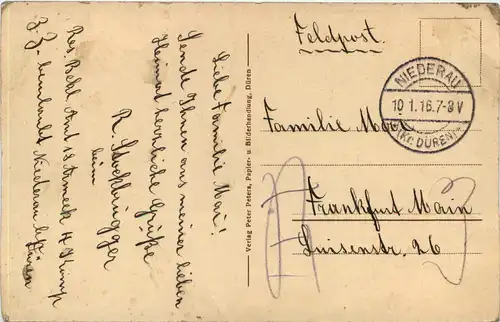 Liebe Familie Mai!
Sende Ihnen aus meiner lieben
Heimat herrliche Grüße
R. Stockbrügger
beim
Res. Bekl. Amt 18. Armeek
z. Z. Niederau
Düren
Verlag Peter Peters, Papier- u. Bilderhandlung, Düren
Feldpost.
NIEDERAU
10.1.16.7-8V
(Kr. DÜREN)
Familie Mai
Frankfurt Main
Luisenstr. 26